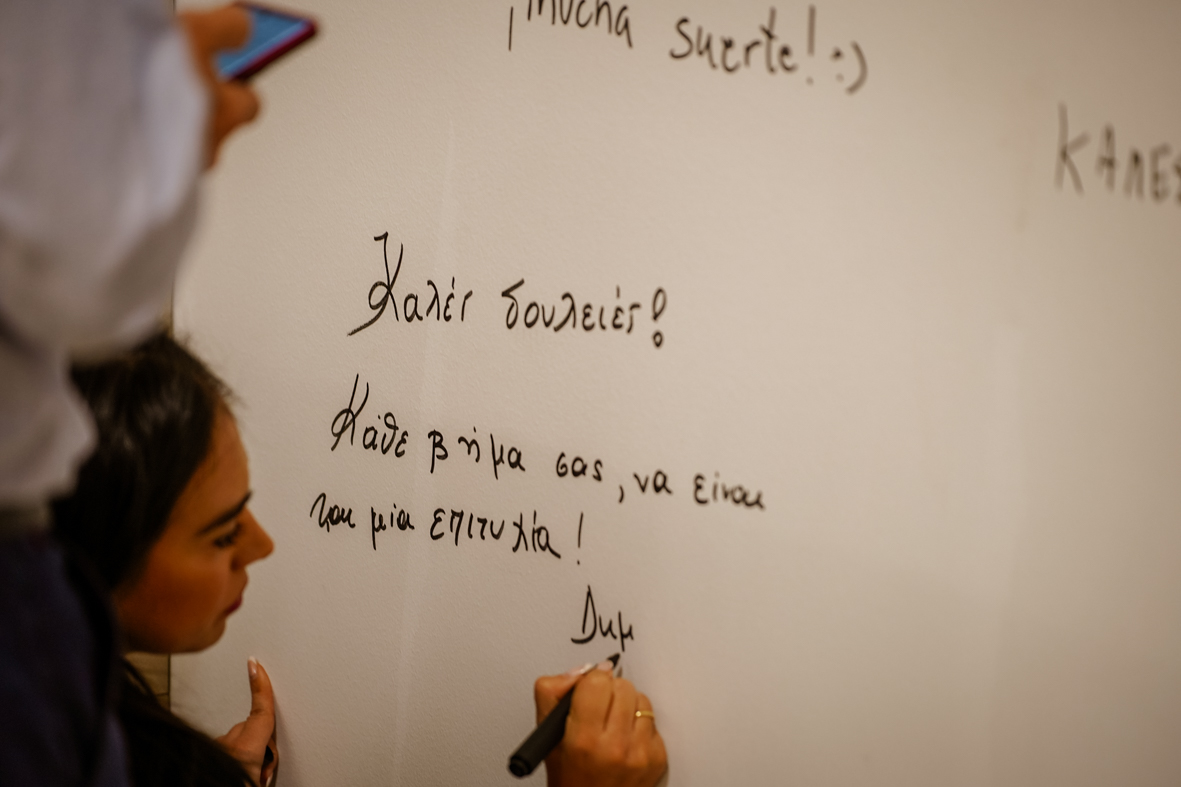 ¡Mucha suerte! :)
ΚΑΛΕΣ
Καλές δουλειές!
Κάθε βήμα σας, να είναι
και μία επιτυχία!
Δημ